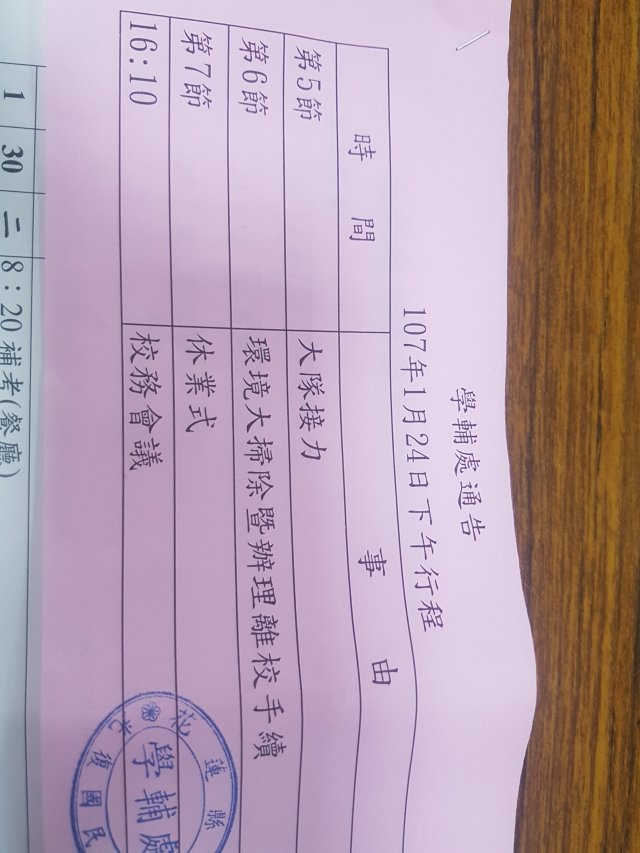 學輔處通告
107年1月24日下午行程
時 間 事 由
第5節 大隊接力
第6節 環境大掃除暨辦理離校手續
第7節 休業式
16:10 校務會議
花蓮縣
光復國民
學輔處
1 30 二 8：20補考(餐廳)